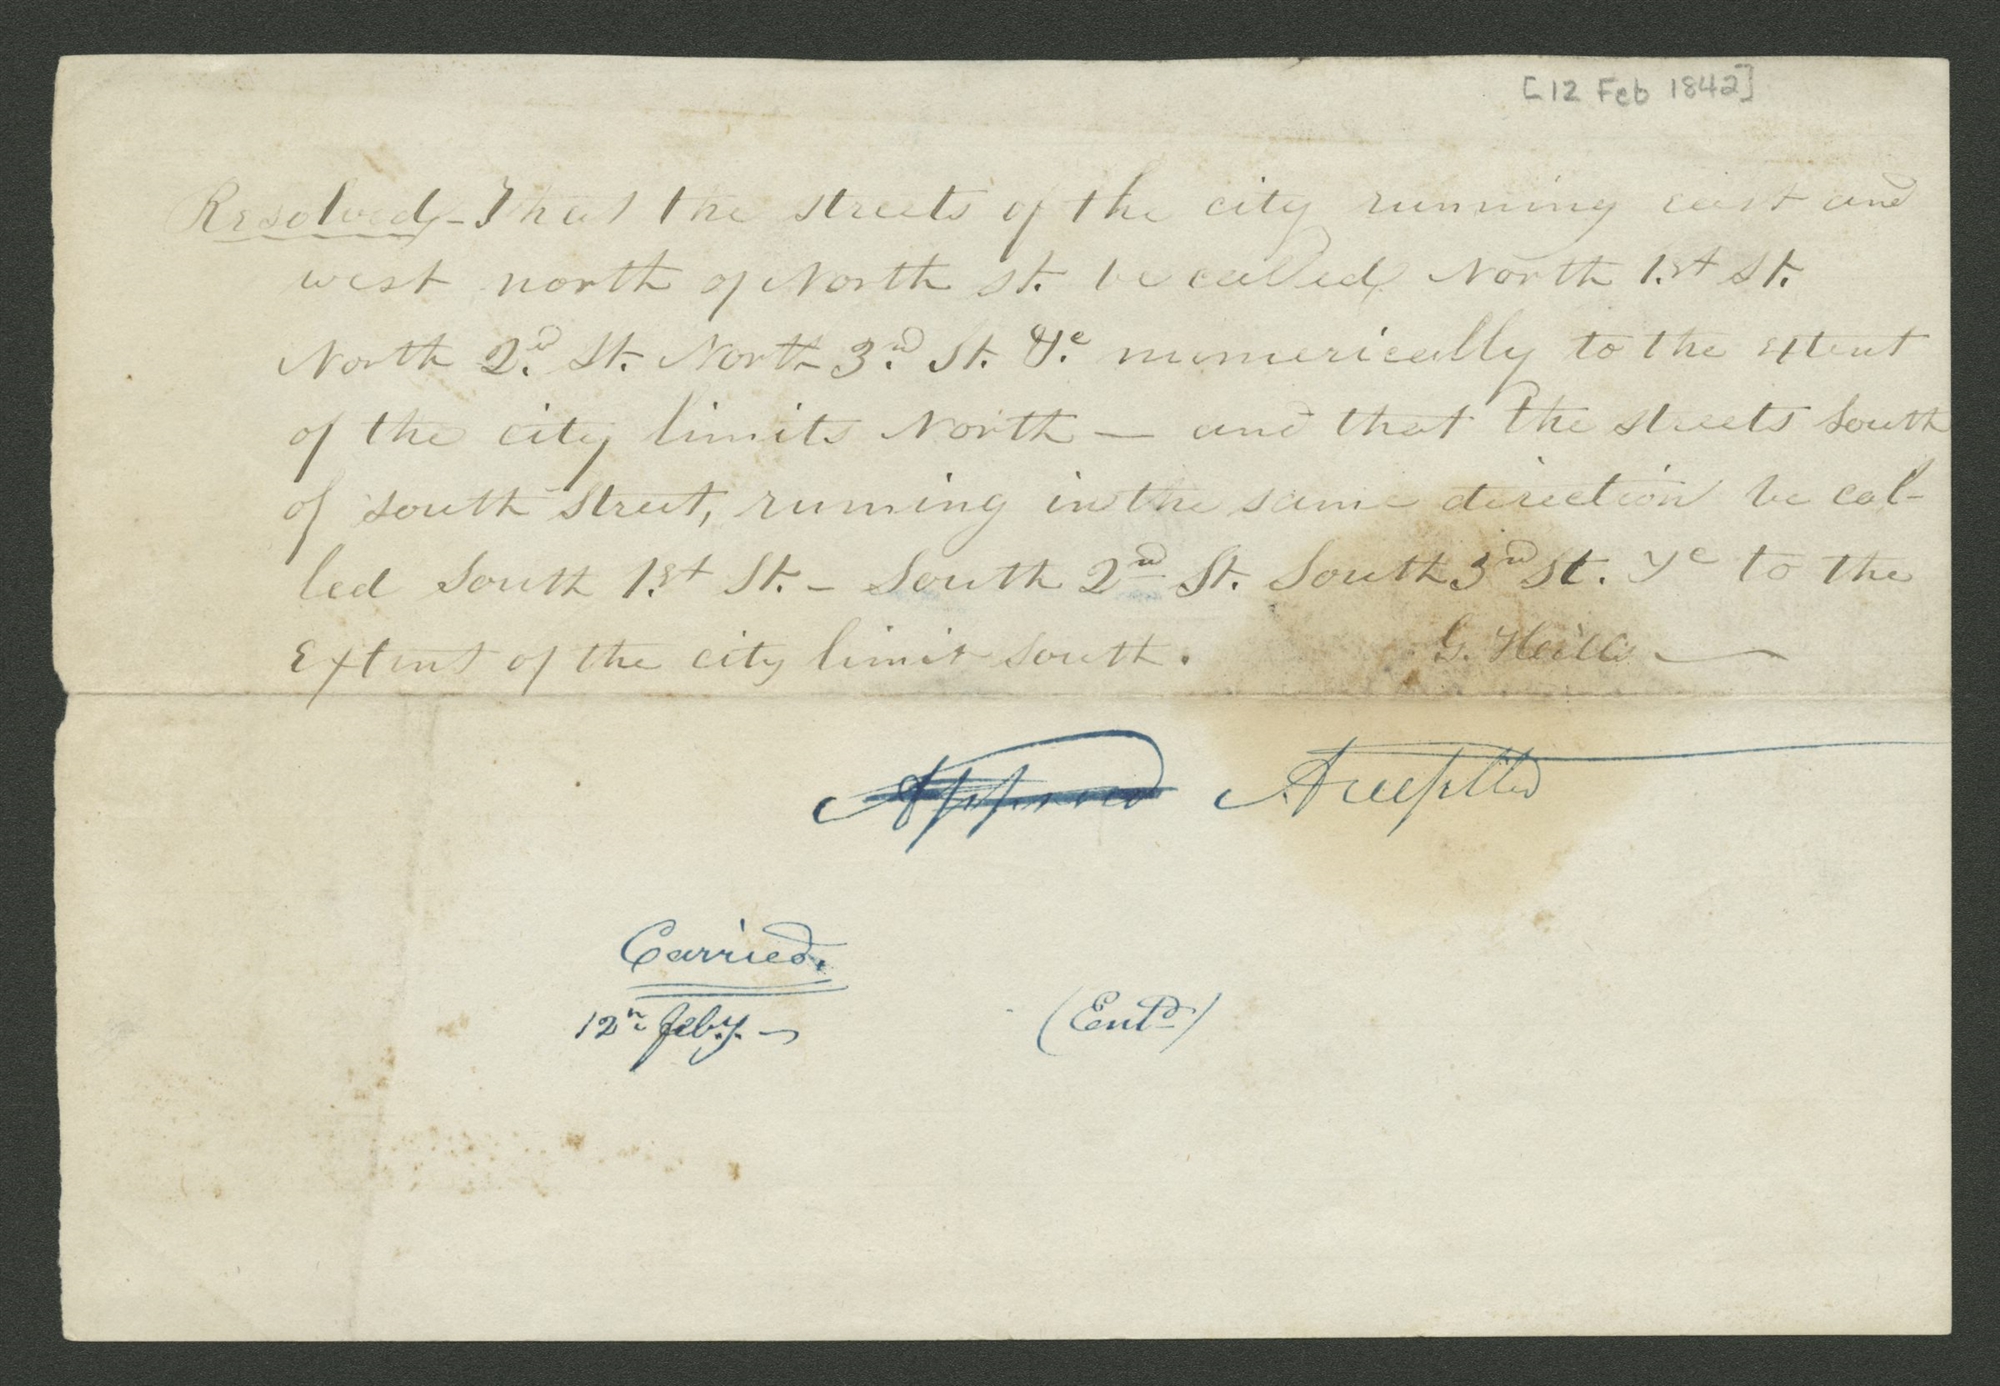 [12 Feb 1842]
Resolved - That the streets of the city running east and
west north of North st. be called North 1.st St.
North 2.d St. North 3.rd St. &.c numerically to the extent
of the city limits North — and that the streets South
of South Street, running in the same direction be cal-
led South 1.st St. - South 2nd St. South 3rd St. &c to the
Extent of the city limit South.
G.
Approved Accepted
Carried.
12th feb.y. -
(Entd)